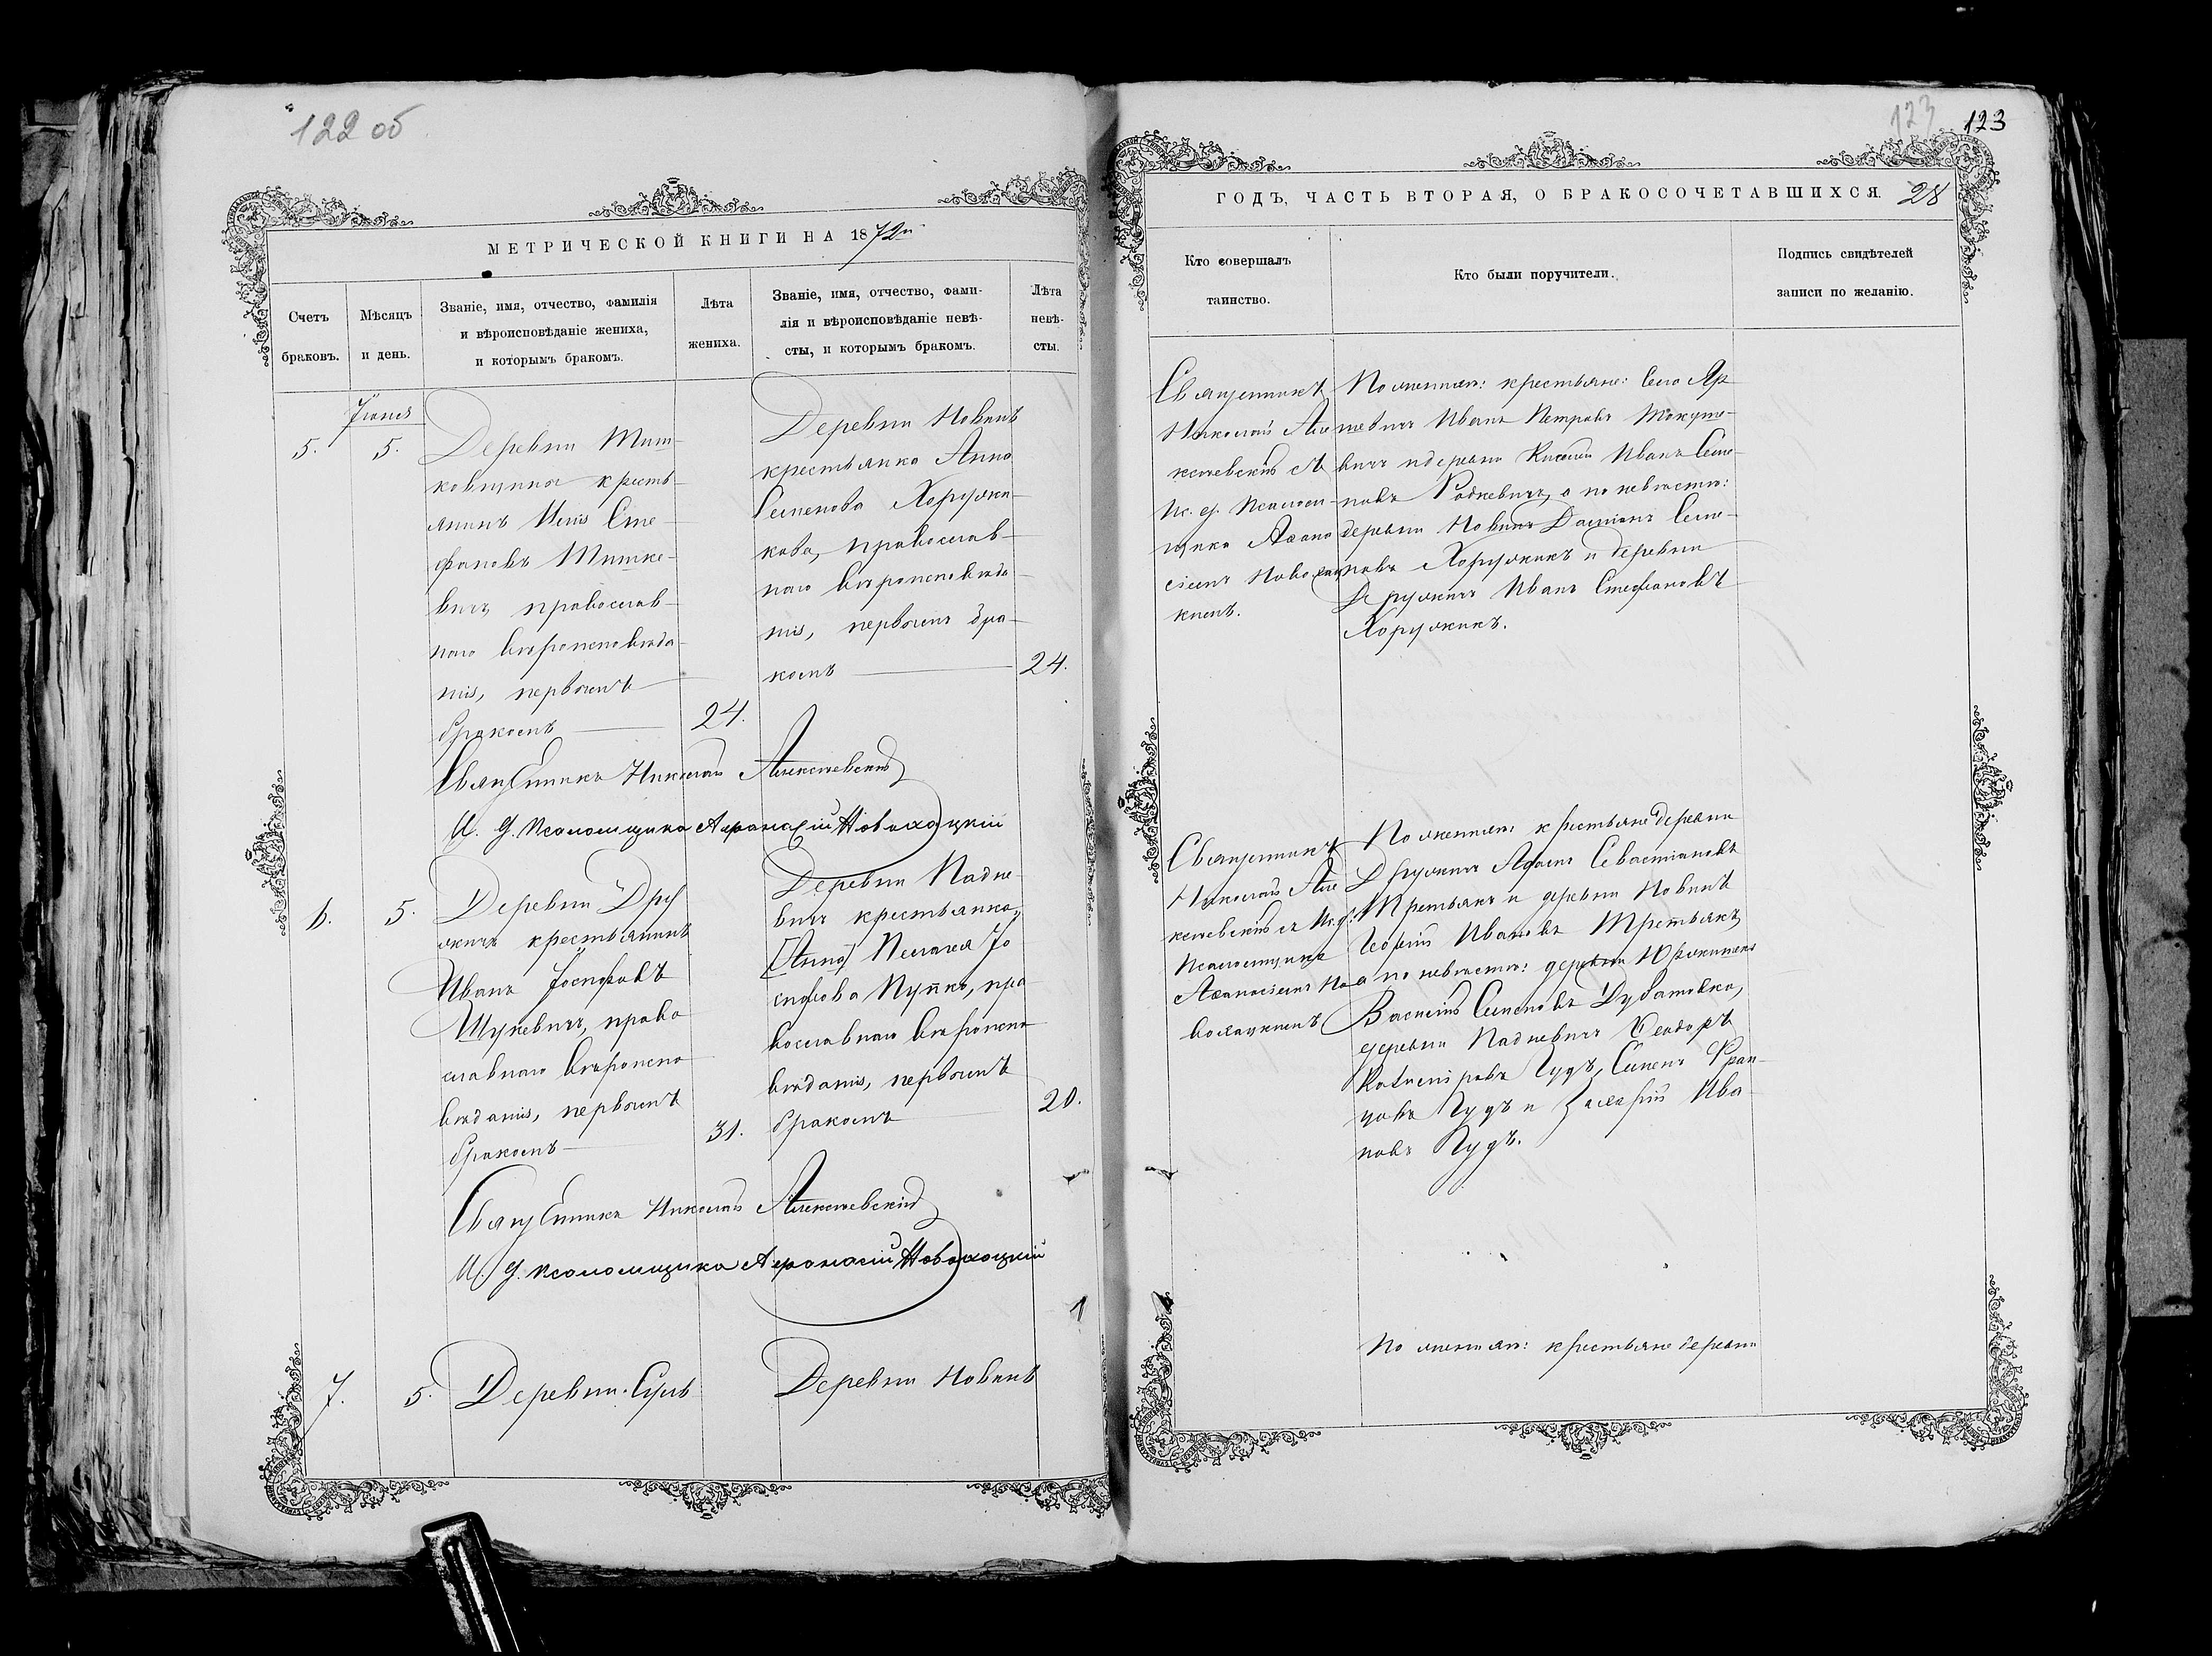 122 об
МЕТРИЧЕСКОЙ КНИГИ НА 1872й
Счетъ
браковъ.
Мѣсяцъ
и день.
Званіе, имя, отчество, фамилія
и вѣроисповѣданіе жениха,
и которымъ бракомъ.
Лѣта
жениха.
Званіе, имя, отчество, фами-
лія и вѣроисповѣданіе невѣ-
сты, и которымъ бракомъ.
Лѣта
невѣ-
сты.
Іюня
5.
5.
Деревни Мит-
ковщина кресть-
янинъ Стe-
фановъ Мишке-
вичъ, православ-
наго вѣроисповѣда-
нія, первымъ
бракомъ
24.
Деревни Новинъ
крестьянка Анна
Семенова Хоружи-
кова, православ-
наго вѣроисповѣда-
нія, первымъ бра-
комъ
24.
Священникъ Николай Алексѣевскій
И. д. Псаломщика Афанасій Новохацкій
6.
5.
Деревни Дру
жичъ крестьянинъ
Иванъ Іосифовъ
Шукевичъ, право
славнаго вѣроиспо
вѣданія, первымъ
бракомъ
31.
Деревни Падне
вичъ крестьянка,
[Анна] Пелагея Іо
сифова Пупко, пра
вославнаго вѣроиспо
вѣданія, первымъ
бракомъ
20.
Священникъ Николай Алексѣевскій
И. д. Псаломщика Афанасій Новохацкій
1
7.
5.
Деревни Сулъ
Деревни Новинъ
123
123
ГОДЪ, ЧАСТЬ ВТОРАЯ, О БРАКОСОЧЕТАВШИХСЯ.
28
Кто совершалъ
таинство.
Кто были поручители.
Подпись свидѣтелей
записи по желанію.
Священникъ
Николай Але
ксѣевскій съ
Ис. д. Псалом-
щика Аѳана
сіемъ Новохац
кимъ.
По женихѣ: крестьяне: села
Иванъ Петровъ
вичъ и деревни Иванъ Семе-
новъ Радкевичъ, а по невѣстѣ:
деревни Новинъ Даміанъ Семе-
новъ Хоружикъ и деревни
Дружичъ Иванъ Стефановъ
Хоружикъ.
Священникъ
Николай Але
ксѣевскій съ Ис. д.
Псаломщика
Аѳанасіемъ Но
вохацкимъ
По женихѣ: крестьяне деревни
Дружичъ Адамъ Севастіановъ
Третьякъ и деревни Новинъ
Георгій Ивановъ Третьякъ,
а по невѣстѣ: деревни
Василій Семеновъ Дубатовка,
деревни Падневичъ Ѳеодоръ
Казиміровъ Гудъ, Семенъ Фран-
цовъ Гудъ и Захарій Ива
новъ Гудъ.
По женихѣ: крестьяне деревни